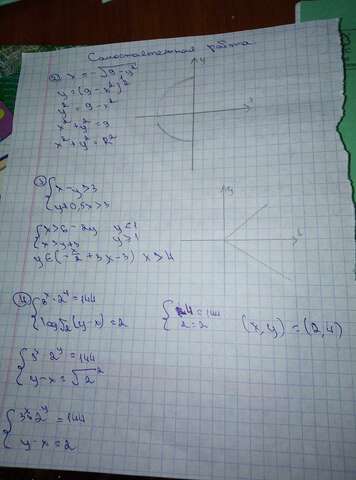 Самостоятельная работа
2) x = -√9-y²
y = (9 - x²)²
y² = 9 - x²
x² + y² = 9
x² + y² = R²
y
3) { x-y>3
y+0,5x>3
y
{ x>6-2y y<1
x>y+3 y>1
y∈(-x/2+3x-3) x>4
4) { 3ˣ·2ʸ=144
log√2(y-x)=2
{ 144=144
2=2
(x, y) = (2,4)
{ 3ˣ·2ʸ=144
y-x=√2²
{ 3ˣ·2ʸ=144
y-x=2